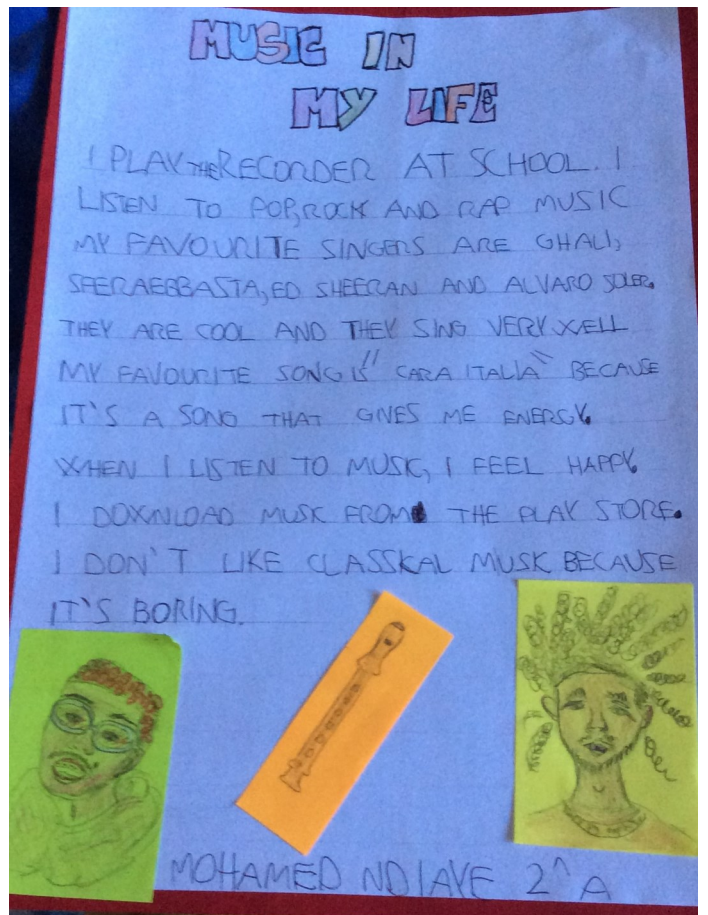 MUSIC IN
MY LIFE
I PLAY THE RECORDER AT SCHOOL. I
LISTEN TO POP, ROCK AND RAP MUSIC
MY FAVOURITE SINGERS ARE GHALI,
SFERAEBBASTA, ED SHEERAN AND ALVARO SOLER.
THEY ARE COOL AND THEY SING VERY WELL
MY FAVOURITE SONG IS "CARA ITALIA" BECAUSE
IT'S A SONG THAT GIVES ME ENERGY.
WHEN I LISTEN TO MUSIC, I FEEL HAPPY.
I DOWNLOAD MUSIC FROM THE PLAY STORE.
I DON'T LIKE CLASSICAL MUSIC BECAUSE
IT'S BORING.
MOHAMED NDIAYE 2^A